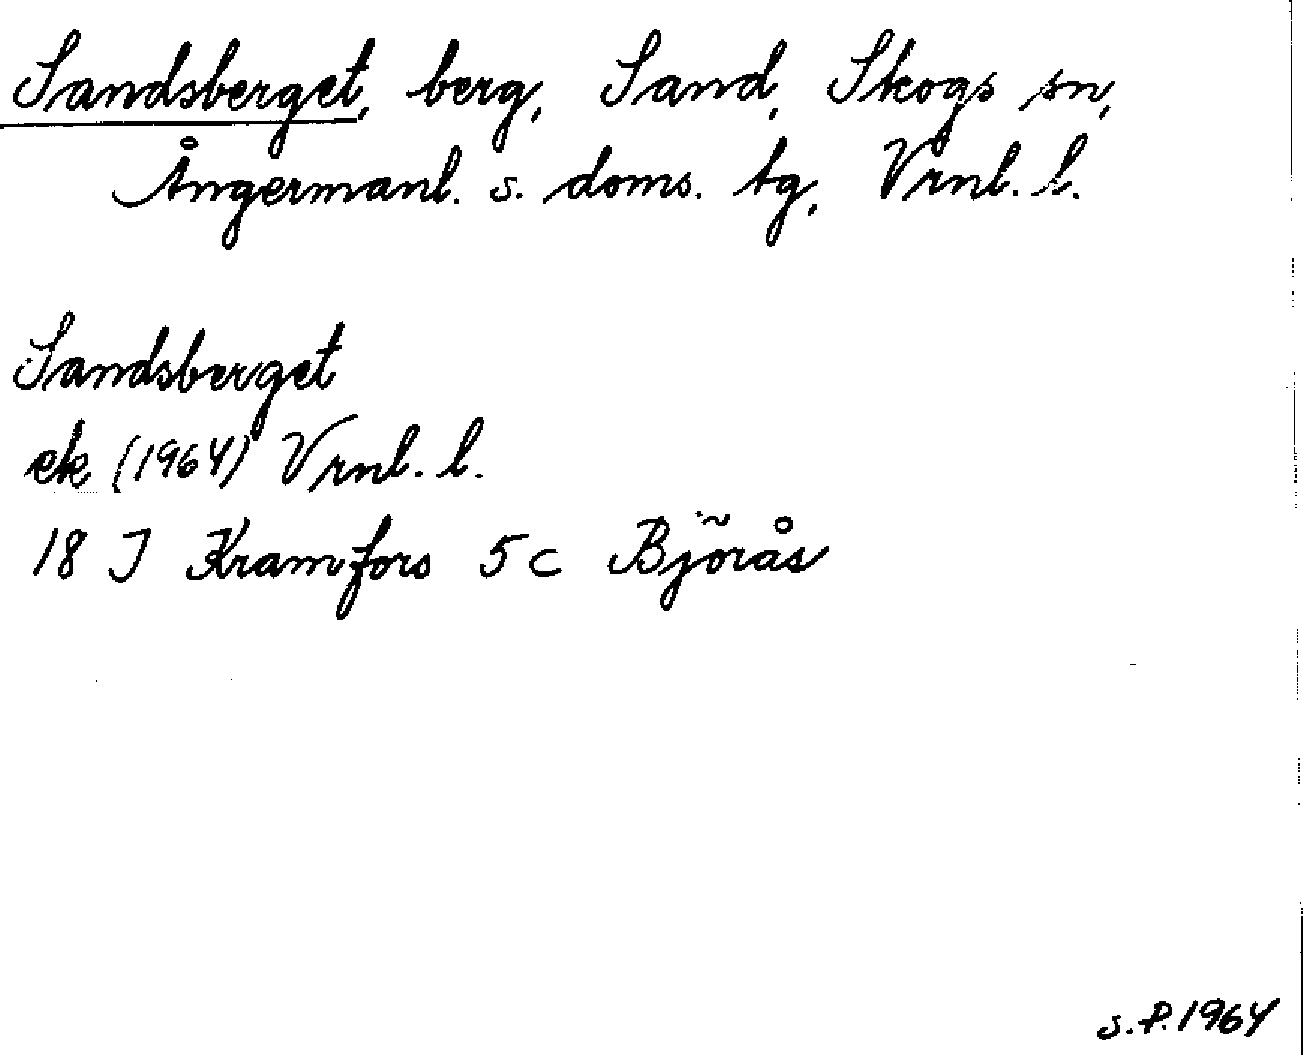 Sandsberget, berg, Sand, Skogs sn,
Ångermanl. s. doms. tg, Vrnl. l.
Sandsberget
ek (1964) Vrnl. l.
18 J Kramfors 5 c Björås
S.P. 1964